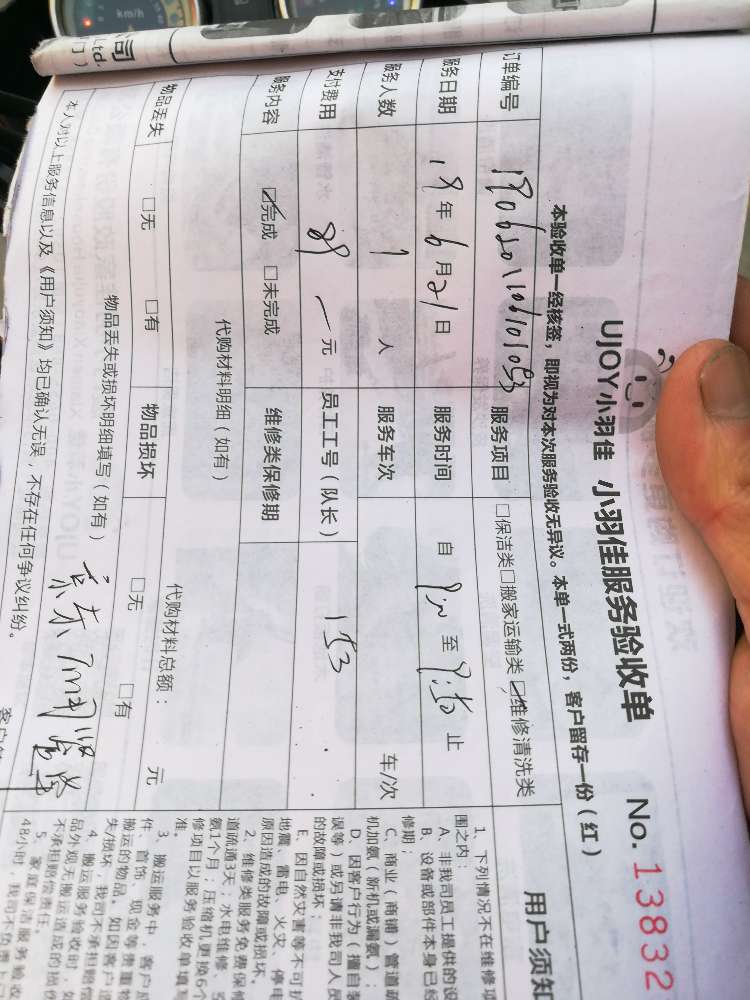 km/h
公司
Ltd
UJOY小羽佳 小羽佳服务验收单 No. 13832
本验收单一经核签，即视为对本次服务验收无异议。本单一式两份，客户留存一份（红）
订单编号 服务项目 □保洁类□搬家运输类☑维修清洗类
服务日期 19年6月21日 服务时间 自 至 止
服务人数 1 人 服务车次 车/次
支付费用 89 元 员工工号（队长） 153
服务内容 ☑完成 □未完成 维修类保修期
代购材料明细（如有） 代购材料总额： 元
物品丢失 □无 □有 物品损坏 □无 □有
物品丢失或损坏明细填写（如有）
本人对以上服务信息以及《用户须知》均已确认无误，不存在任何争议纠纷。
用户须知
1、下列情况不在维修项
围之内：
A、非我司员工提供的设
B、设备或部件本身已经
修期；
C、商业（商铺）管道疏
机加氨（新机或漏氨）；
D、因客户行为（擅自装
误等）或另请非我司人员
的故障或损坏；
E、因自然灾害等不可抗
地震、雷电、火灾、停电
原因造成的故障或损坏。
2、维修类服务免费保修
道疏通3天；水电维修、空
氨1个月；压缩机更换6个
修项目以服务验收单填写
准。
3、搬运服务中，客户应
件、首饰、现金等贵重物
搬运的物品。如因客户
失/损坏，我司不承担赔偿
4、搬运服务验收时，如
品外观无搬运造成的损伤
不承担赔偿责任。
5、家庭保洁服务验收
48小时，我司不负责